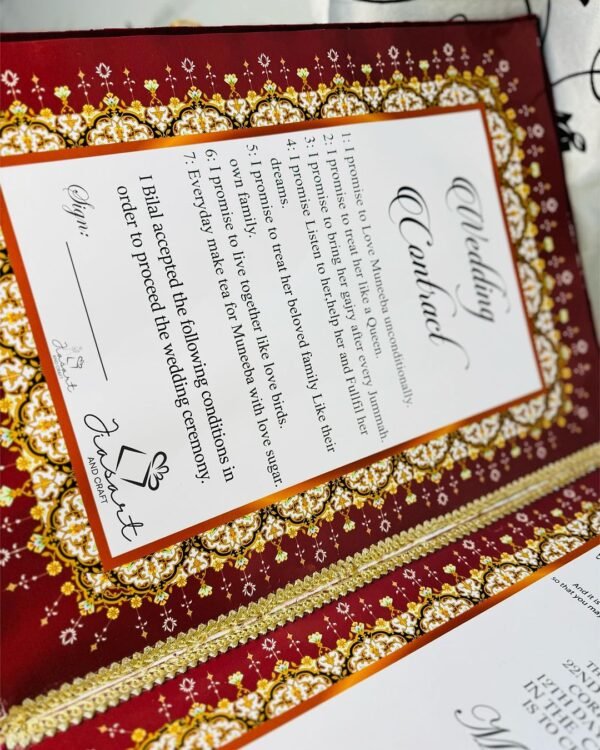 Wedding
Contract
1: I promise to Love Muneeba unconditionally.
2: I promise to treat her like a Queen.
3: I promise to bring her gajry after every Jummah.
4: I promise Listen to her,help her and Fullfil her
dreams.
5: I promise to treat her beloved family Like their
own family.
6: I promise to live together like love birds.
7: Everyday make tea for Muneeba with love sugar.
I Bilal accepted the following conditions in
order to proceed the wedding ceremony.
Sign:
AND CRAFT
And it is
so that you may
22ND
12TH DA
IN THE
IS TO